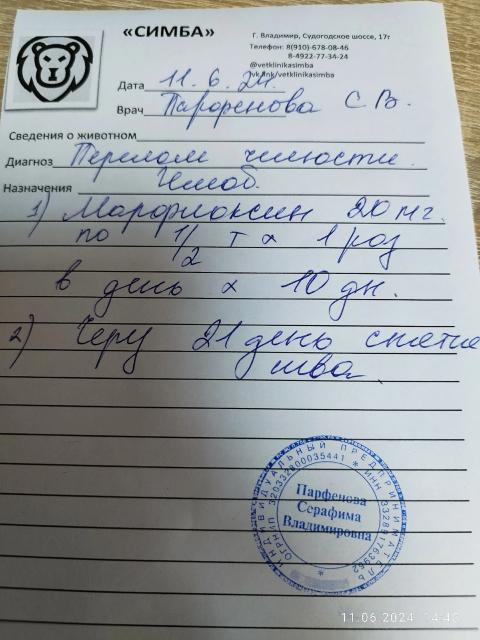 «СИМБА»
Г. Владимир, Судогодское шоссе, 17г
Телефон: 8(910)-678-08-46
8-4922-77-34-24
@vetklinikasimba
vk.link/vetklinikasimba
Дата 11.6.24.
Врач Парфенова С В.
Сведения о животном
Диагноз Перелом челюсти.
Назначения
1) Марфлоксин 20 мг.
по 1/2 т x 1 раз
в день x 10 дн.
2) Через 21 день снятие
шва.
ИНДИВИДУАЛЬНЫЙ ПРЕДПРИНИМАТЕЛЬ
ОГРНИП 320332800035441 * ИНН 332891763962
Парфенова
Серафима
Владимировна
11.06.2024 14:45